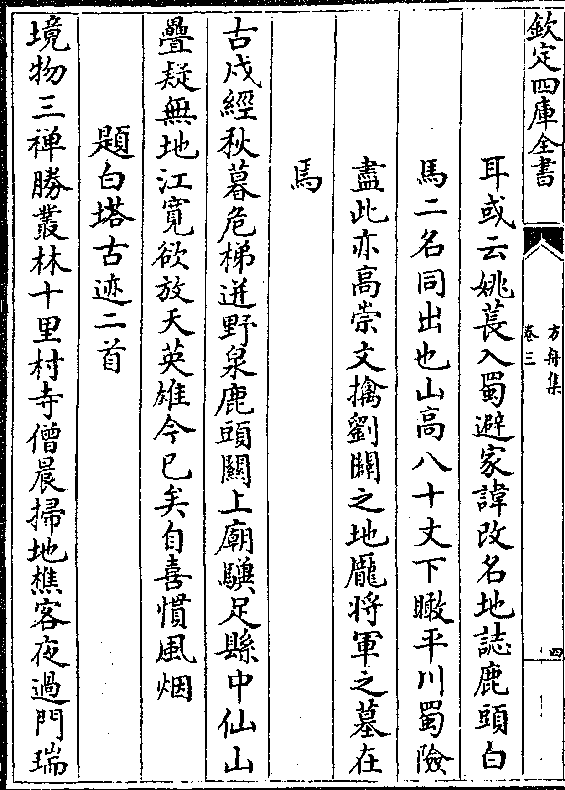 欽定四庫全書
方舟集
卷三
四
耳或云姚萇入蜀避家諱改名地誌鹿頭白
馬二名同出也山高八十丈下瞰平川蜀險
盡此亦高崇文擒劉闢之地龐将軍之墓在
馬
古戍經秋暮危梯迸野泉鹿頭關上廟驥足縣中仙山
疊疑無地江寛欲放天英雄今已矣自喜慣風烟
題白塔古迹二首
境物三禅勝叢林十里村寺僧晨掃地樵客夜過門瑞